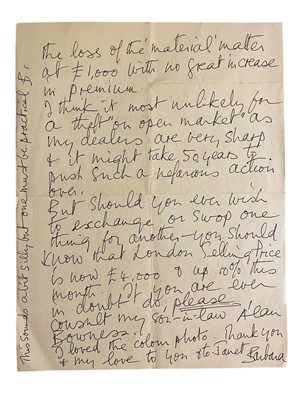 the loss of the 'material' matter
at £1,000 with no great increase
in premium.
I think it most unlikely for
a "theft" "on open market" as
my dealers are very sharp
& it might take 50 years to
push such a nefarous action
over.
But should you ever wish
to exchange or swop one
thing for another – you should
know that London Selling Price
is now £4,000 & up 10% this
month. If you are ever
in doubt do, please
consult my son-in-law Alan
Bowness.
I loved the colour photo. Thank you
& my love to you & to Janet
Barbara
This sounds a bit silly but one must be practical B.